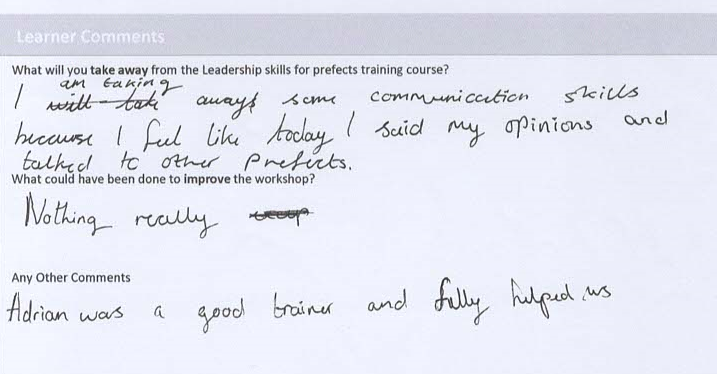 Learner Comments
What will you take away from the Leadership skills for prefects training course?
am taking
I will take aways some communication skills
because I feel like today I said my opinions and
talked to other Prefects.
What could have been done to improve the workshop?
Nothing really
Any Other Comments
Adrian was a good trainer and fully helped us